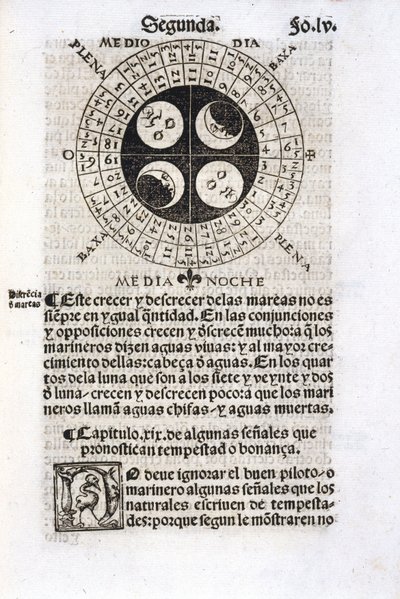 Segunda.
Fo.lv.
MEDIO DIA
PLENA
BAXA
O
BAXA
PLENA
MEDIA NOCHE
¶Este crecer y descrecer delas mareas no es
siēpre en ygual q̄ntidad. En las conjunciones
y opposiciones crecen y d̄screcē mucho: a q̄ los
marineros dizen aguas viuas: y al mayor cre-
cimiento dellas: cabeça d̄ aguas. En los quar
tos dela luna que son a los siete y veynte y dos
d̄ luna crecen y descrecen poco: a que los mari
neros llamā aguas chifas y aguas muertas.
¶Capitulo.xix.de algunas señales que
pronostican tempestad o bonança.
NO deue ignorar el buen piloto o
marinero algunas señales que los
naturales escriuen de tempesta-
des: porque segun le mōstraren no